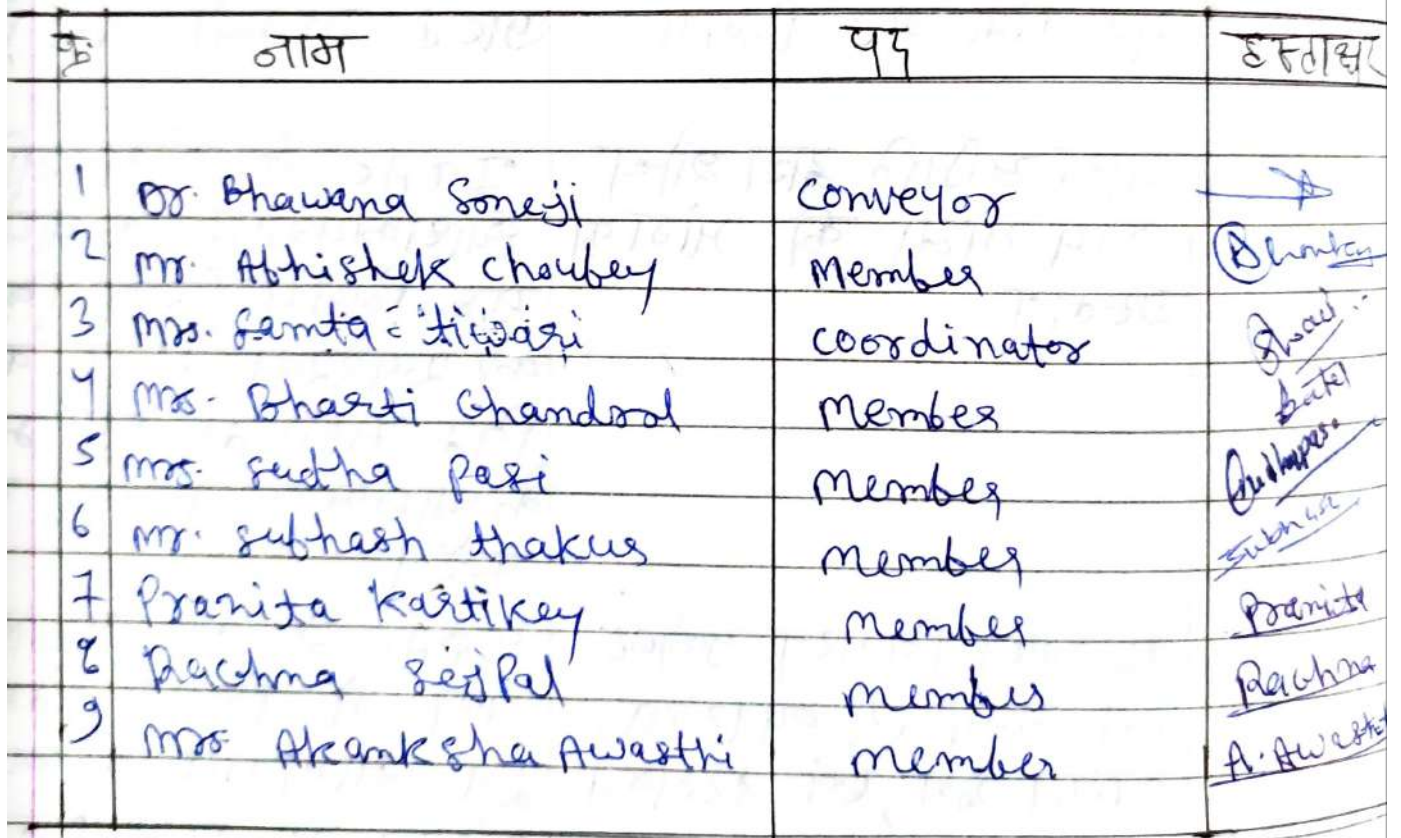 क्र. नाम पद हस्ताक्षर
1 Dr. Bhawana Soneji Conveyor
2 Mr. Abhishek Choubey Member
3 Mrs. Samta Tiwari Coordinator
4 Mrs. Bharti Chandrol Member
5 Mrs. Sudha Pasi Member
6 Mr. Subhash Thakur Member
7 Pranita Kartikey Member Pranita
8 Rachna Sejpal Member Rachna
9 Mrs Akanksha Awasthi Member A. Awasthi